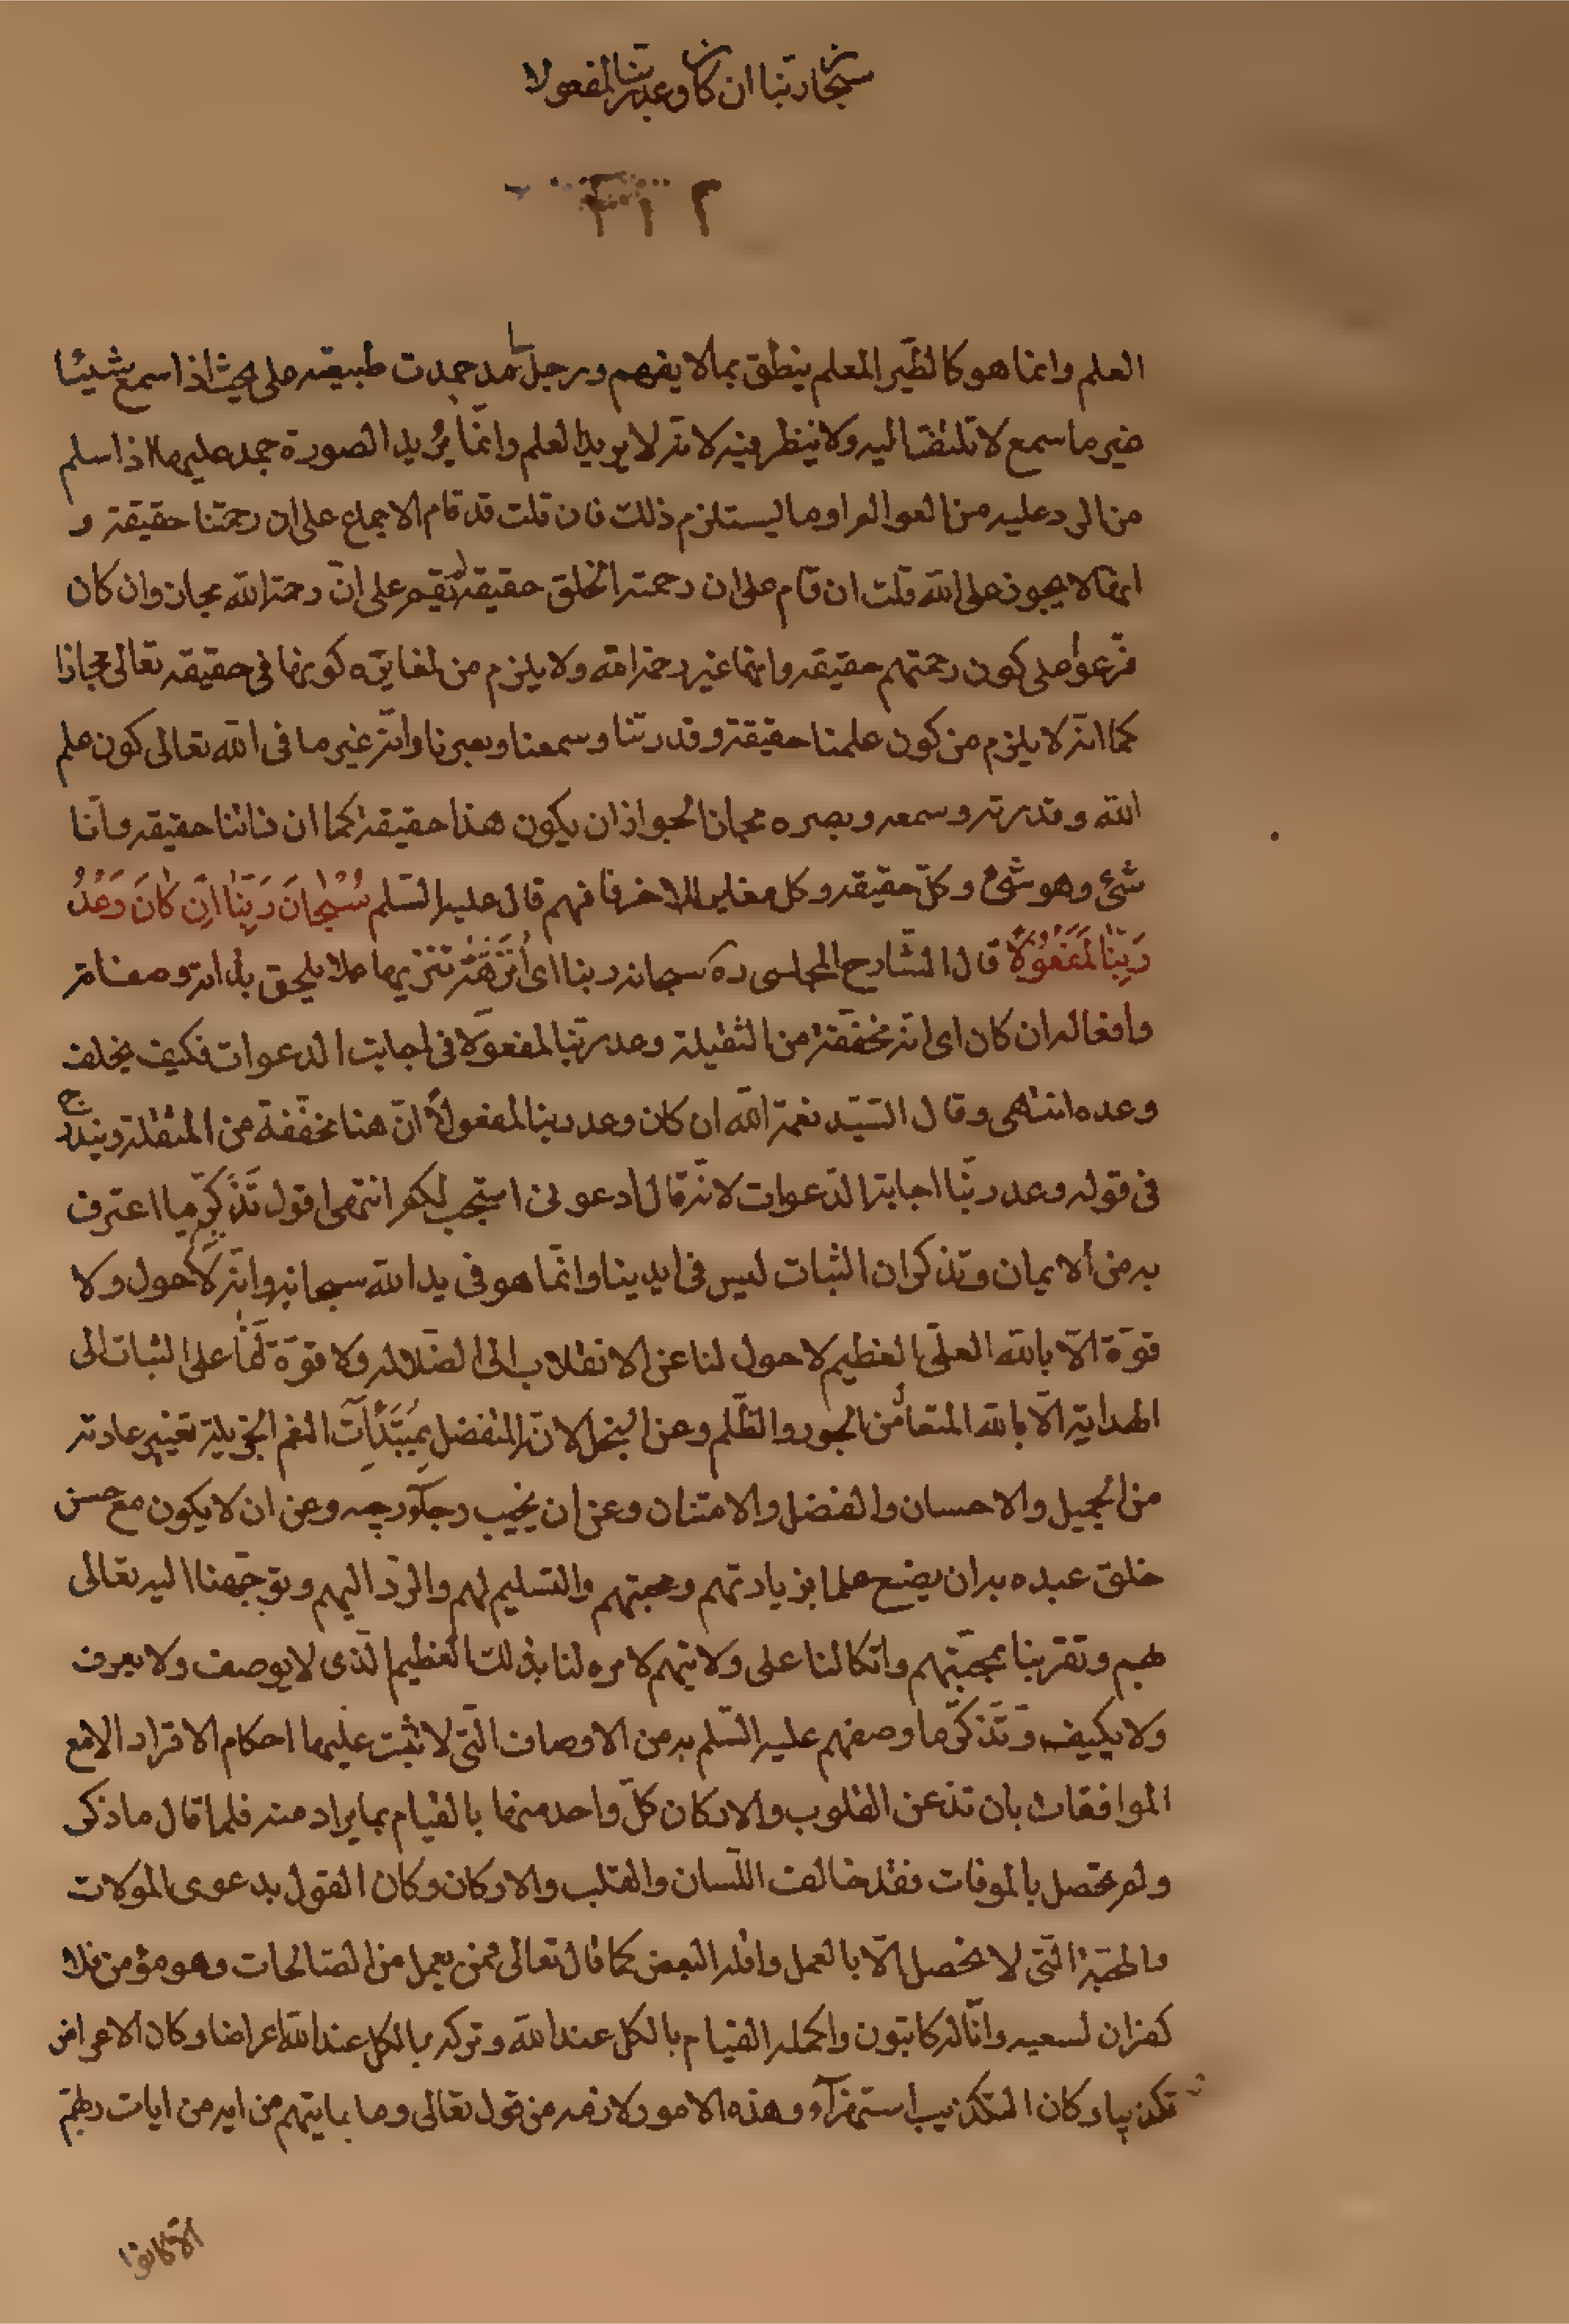 سبحان ربنا ان كان وعد ربنا لمفعولا
٢١٢
العلم وانما هو كالطير المعلم ينطق بما لا يفهم ورجل جمدت طبيعته على بحيث اذا سمع شيئا
غير ما سمع لا تلتفت اليه ولا ينظر فيه لانه لا يريد العلم وانّما يُريد الصورة جمد عليها اذا سلم
من الرد عليه من العوالم او ما ليستلزم ذلك فان قلت قد قام الاجماع على ان رحمتنا حقيقة و
انها لا يجوز على الله قلت ان قام على ان رحمة الخلق حقيقة لم يقم على انّ رحمة الله مجاز وان كان
فرّعوا على كون رحمتهم حقيقة وانها غير رحمة الله ولا يلزم من لغايته كونها فى حقيقه تعالى مجازا
كما انّه لا يلزم من كون علمنا حقيقة وقدرتنا وسمعنا وبصرنا وانّه غير ما فى الله تعالى كون علم
الله وقدرته وسمعه وبصره مجازا لجواز ان يكون هذا حقيقة كما ان ذاتنا حقيقه وانّا
شئ وهو شئ وكلّ حقيقه وكل مغاير للاخر فافهم قال عليه السّلم سُبْحٰانَ رَبِّنٰا اِنْ كٰانَ وَعْدُ
رَبِّنٰا لَمَفْعُوْلًا قال الشّارح المجلسى ره سبحان ربنا اى اُنَزِّهُهُ تنزيها عمّا لا يليق بذاته وصفاته
وافعاله ان كان اى انّه مخفّفة من الثقيلة وعد ربّنا لمفعولا فى اجابت الدعوات فكيف يخلف
وعده انتهى وقال السّيّد نعمة الله ان كان وعد ربنا لمفعولًا انّ هنا مخفّفة من المثقلة ويندرج
فى قوله وعد ربّنا اجابة الدّعوات لانّه قال ادعونى استجب لكم انتهى اقول تَذَكّر ما اعترف
به من الايمان وتذكر ان الثبات ليس فى ايدينا وانّما هو فى يد الله سبحانه وانّه لا حول ولا
قوّة الّا بالله العلّى العظيم لا حول لنا عن الانقلاب الى الضّلاله ولا قوّة لَنٰا على الثبات الى
الهداية الّا بالله المتعال من الجور والظّلم وعن البخل لانّه المتفضل بمُبْتَدَآتِ النعم الجزيلة تغيير عادته
من الجميل والاحسان والفضل والامتنان وعن ان يخيب رجآء رجيه وعن ان لا يكون مع حسن
خلق عبده به ان يضع علما بزيادتهم ومحبتهم والتسليم لهم والرّد اليهم وتوجّهنا اليه تعالى
بهم وتقربنا بمحبّتهم واتكالنا على ولايتهم لامره لنا بذلك العظيم الّذى لا يوصف ولا يعرف
ولا يكيف وتَذكّر ما وصفهم عليه السّلم به من الاوصاف الّتى لا ثبت عليها احكام الاقرار الا مع
الموافقات بان تذعن القلوب والاركان كلّ واحد منها بالقيام بما يراد منه فلما قال ما ذكر
ولم تحصل بالموفات فقد خالفت اللّسان والقلب والاركان وكان القول بدعوى المولات
والمحبّة الّتى لا تحصل الّا بالعمل واقله البعض كما قال تعالى فمن يعمل من الصّالحات وهو مؤمن فلا
كفران لسعيه وانّا له كاتبون واكمله القيام بالكل عند الله وتركه بالكل عند الله اعراضا وكان الاعراض
تكذيبا وكان التكذيب استهزآء وهذه الامور لازمه من قول تعالى وما يايتهم من ايه من ايات ربهم
الّا كانوا